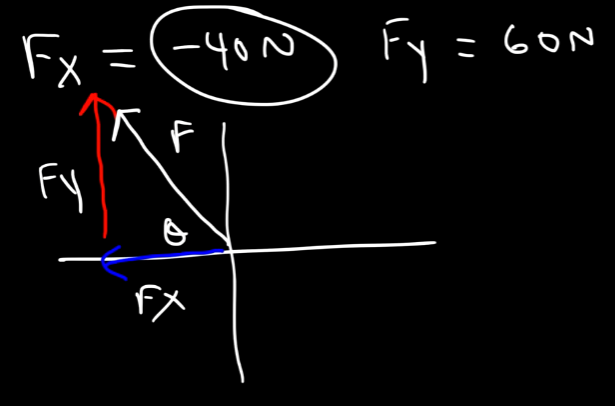 Fx = -40N Fy = 60N
F
Fy
θ
Fx